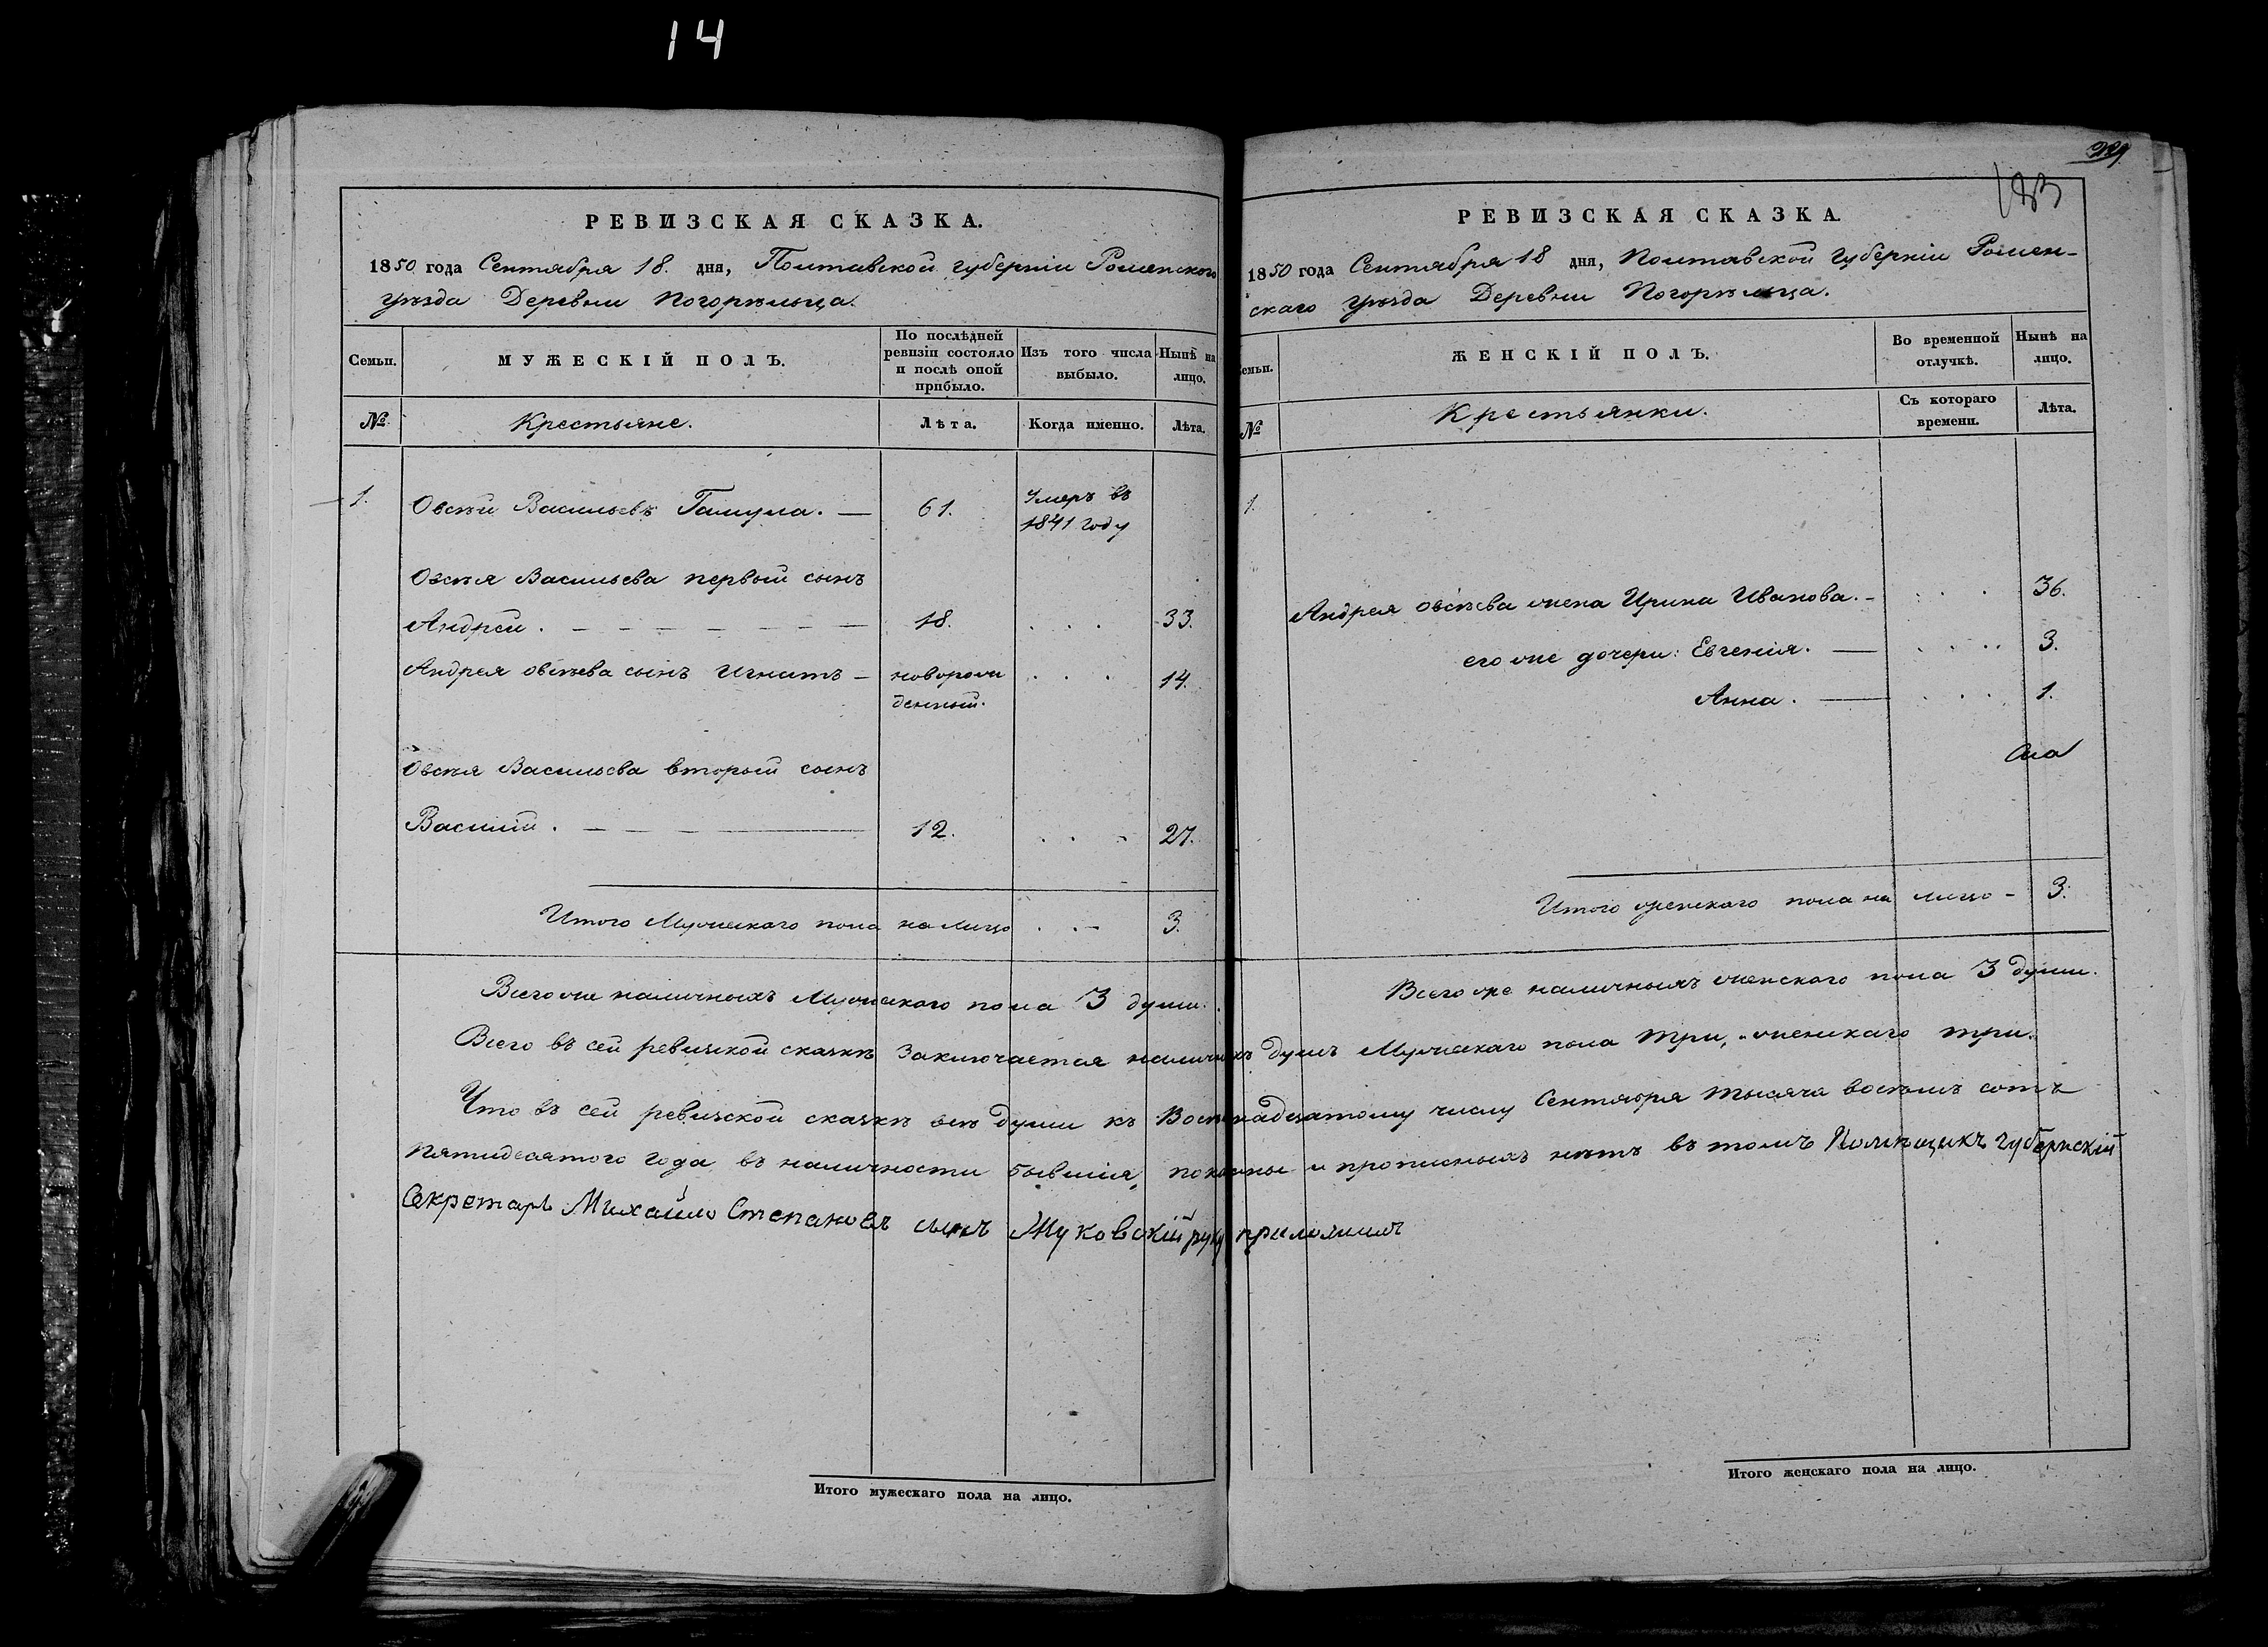 14
РЕВИЗСКАЯ СКАЗКА.
1850 года Сентября 18. дня, Полтавской губерніи Роменского
уѣзда Деревни Погорѣльца.
Семьи.
МУЖЕСКІЙ ПОЛЪ.
По послѣдней
ревизіи состояло
и послѣ оной
прибыло.
Изъ того числа
выбыло.
Нынѣ на
лицо.
№
Крестьяне.
Лѣта.
Когда именно.
Лѣта.
1. Овсѣй Васильевъ Гамула. — 61. Умеръ въ
1841 году
Овсѣя Васильева первый сынъ
Андрей. — 18. . . . 33.
Андрея Овсѣева сынъ Игнатъ — новорож
денный. . . . 14.
Овсѣя Васильева второй сынъ
Василій. — 12. . . . 27.
Итого Мужескаго пола на лицо . . — 3.
Всего же наличныхъ Мужескаго пола 3 души.
РЕВИЗСКАЯ СКАЗКА.
183
1850 года Сентября 18 дня, Полтавской губерніи Ромен-
скаго уѣзда Деревни Погорѣльца.
Семьи.
ЖЕНСКІЙ ПОЛЪ.
Во временной
отлучкѣ.
Нынѣ на
лицо.
№
Крестьянки.
Съ котораго
времени.
Лѣта.
1.
Андрея Овсѣева жена Ирина Иванова. — . . . 36.
его же дочери: Евгенія. — . . . . 3.
Анна. — . . . 1.
Итого женскаго пола на лицо — 3.
Всего же наличныхъ женского пола 3 души.
Всего въ сей ревизской сказкѣ заключается наличныхъ душъ Мужескаго пола три, женскаго три.
Что въ сей ревизской сказкѣ всѣ души къ Восемнадцатому числу Сентября тысяча восемь сотъ
пятидесятого года въ наличности бывшія, показаны и прописныхъ нѣтъ въ томъ Помѣщикъ Губернскій
Секретарь Михайло Степановъ сынъ Жуковскій руку приложилъ
Итого мужескаго пола на лицо.
Итого женскаго пола на лицо.